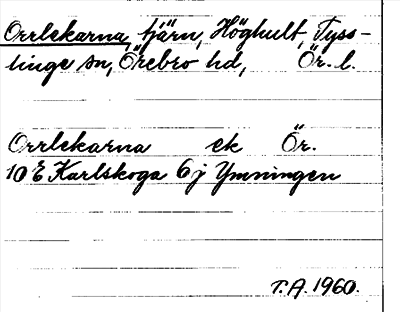 Orrlekarna, tjärn, Höghult, Tyss-
linge sn, Örebro hd, Ör. l.
Orrlekarna ek Ör.
10 E Karlskoga 6 j Ymningen
T.A. 1960.